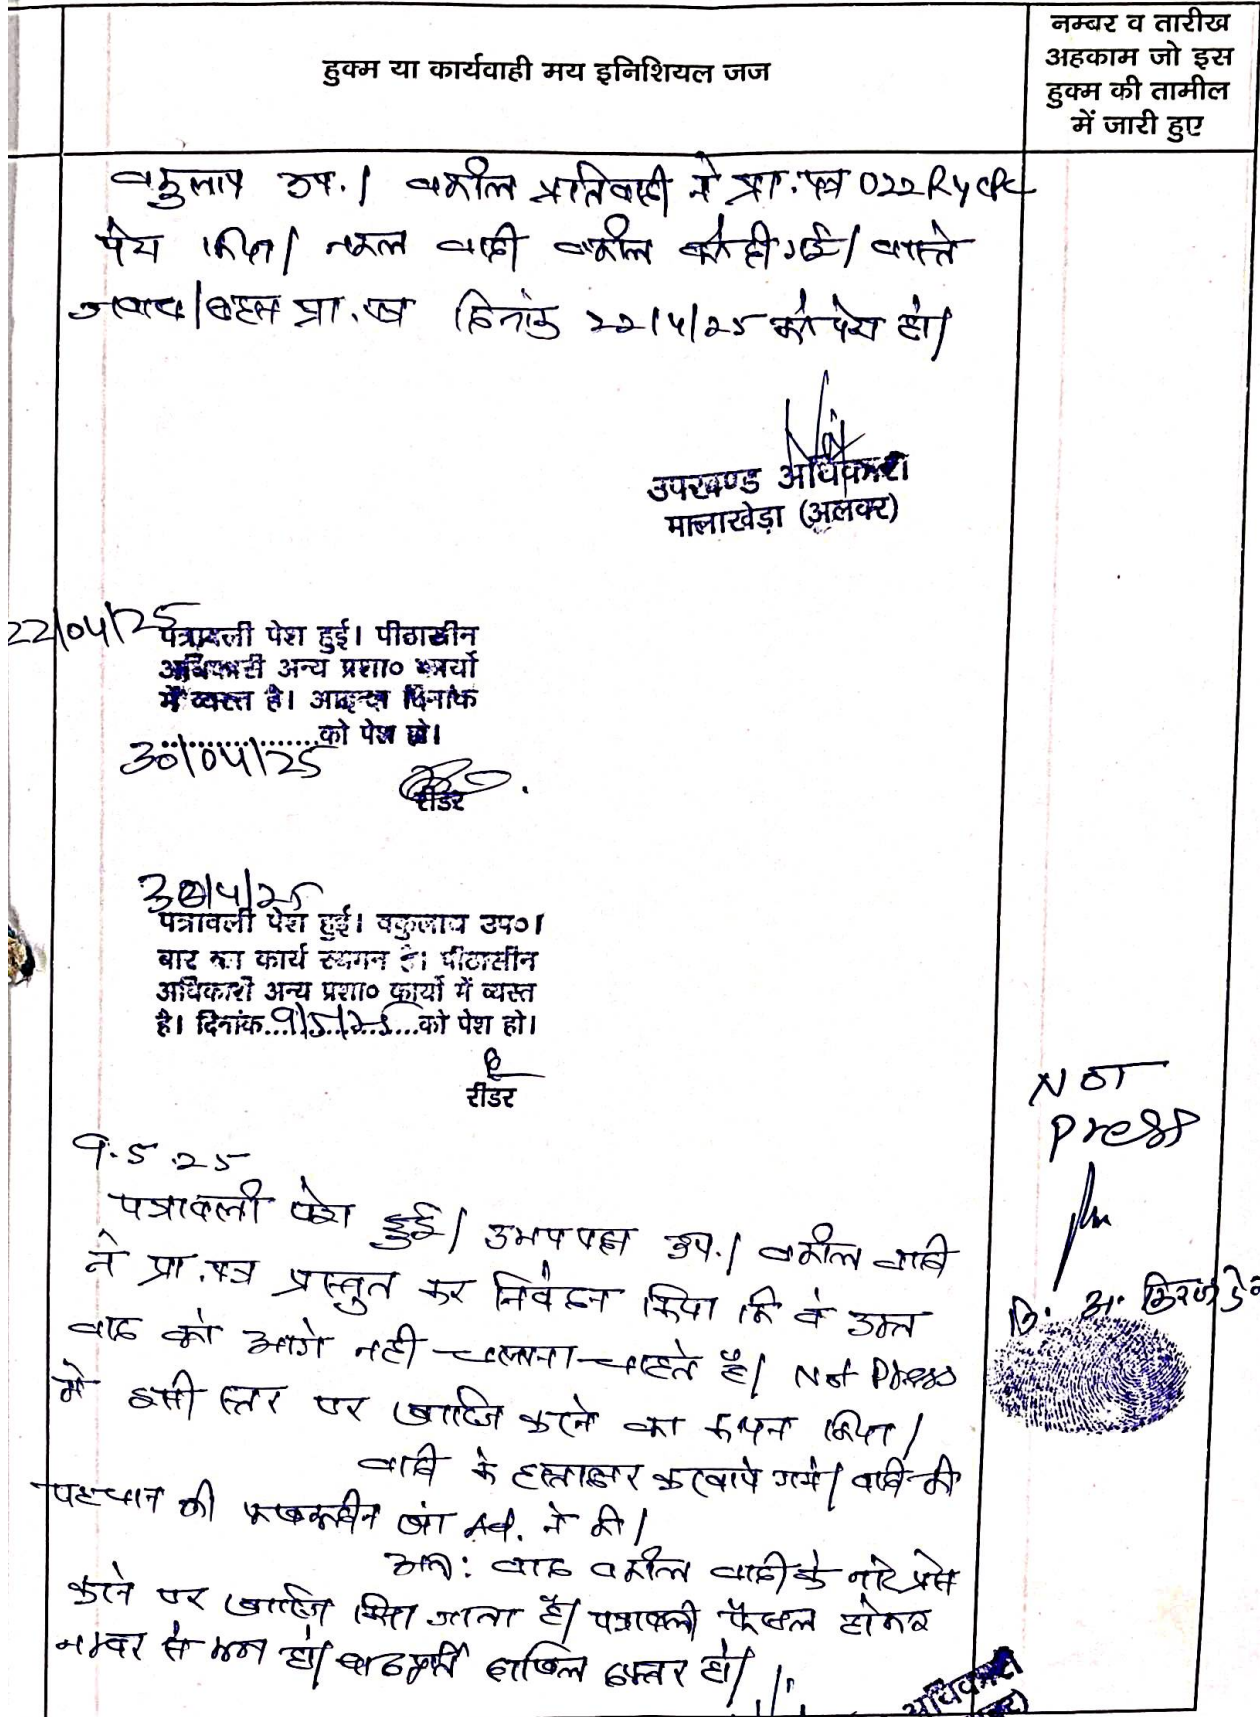 हुक्म या कार्यवाही मय इनिशियल जज
नम्बर व तारीख
अहकाम जो इस
हुक्म की तामील
में जारी हुए
वकुलाय उप.। वकील प्रतिवादी ने प्रा.पत्र O22R4CPC
पेश किया। नकल वादी वकील को दी गई। वास्ते
जवाब/बहस प्रा.पत्र दिनांक 22/4/25 को पेश हो।
उपखण्ड अधिकारी
मालाखेड़ा (अलवर)
22/04/25
पत्रावली पेश हुई। पीठासीन
अधिकारी अन्य प्रशा० कार्यो
में व्यस्त है। आइन्दा दिनांक
30/04/25 को पेश हो।
रीडर
30/4/25
पत्रावली पेश हुई। वकुलाय उप०।
बार का कार्य स्थगन है। पीठासीन
अधिकारी अन्य प्रशा० कार्यो में व्यस्त
है। दिनांक 9/5/25 को पेश हो।
रीडर
NOT
Press
9.5.25
पत्रावली पेश हुई। उभय पक्ष उप.। वकील वादी
ने प्रा.पत्र प्रस्तुत कर निवेदन किया कि वे उक्त
वाद को आगे नही चलाना चाहते है। Not Press
मे इसी स्तर पर खारिज करने का कथन किया।
वादी के हस्ताक्षर करवाये गये। वादी की
पहचान की खां Ad. ने की।
अत: वाद वकील वादी के नोट प्रेस
करने पर खारिज किया जाता है। पत्रावली फैसल होकर
नम्बर से कम हो। दाखिल दफ्तर हो।
नि. अ.
अधिकारी